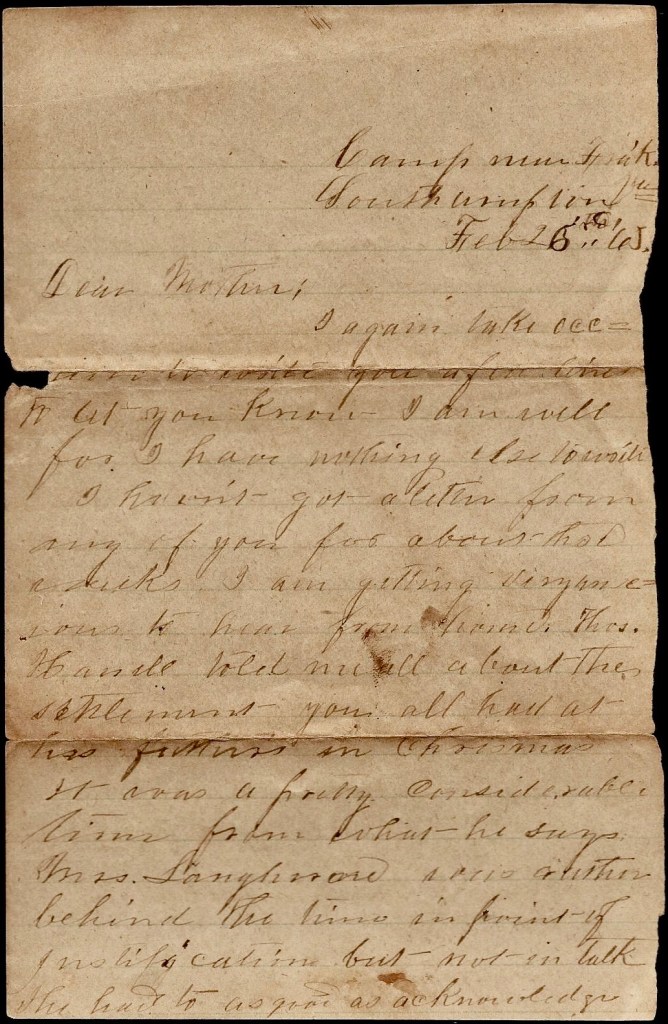 Camp near
Southampton
Feb 26th
Dear Mother;
I again take occa=
sion to write you a few lines
to let you know I am well
for I have nothing else to write
I havn't got a letter from
any of you for about two
weeks. I am getting very anx=
ious to hear from home. Thos.
told me all about the
settlement you all had at
his fathers in Chrismas
It was a pretty considerable
time from what he says.
Mrs. was rather
behind the time in point of
justification but not in talk
She had to as good as acknowledge